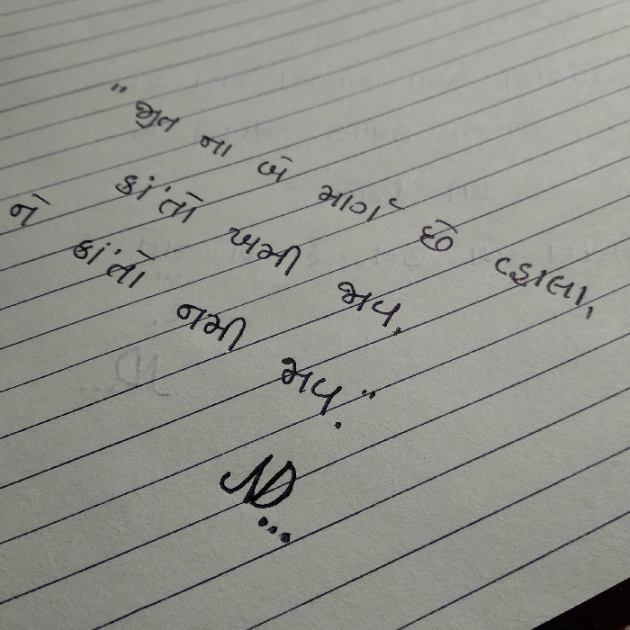 "જીત ના બે માર્ગ છે વ્હાલા,
કાં'તો ખમી જાય,
ને કાં'તો નમી જાય."
ND...